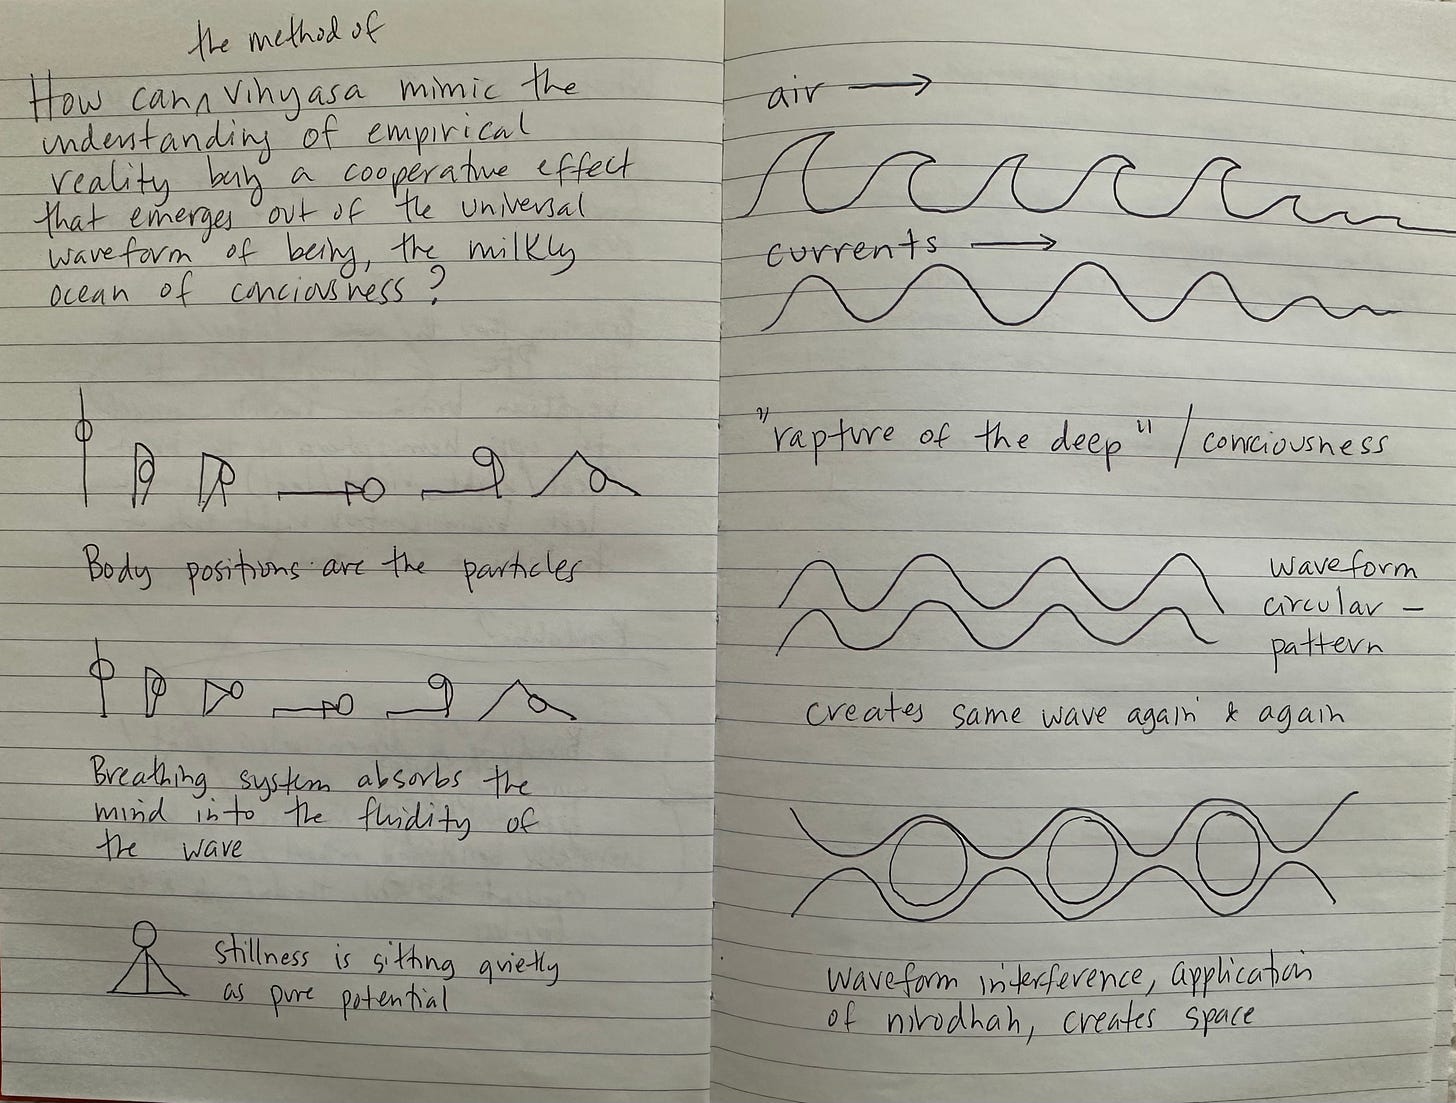 the method of
How can ^ vinyasa mimic the
understanding of empirical
reality buy a cooperative effect
that emerges out of the universal
waveform of being, the milkly
ocean of conciousness?
Body positions are the particles
Breathing system absorbs the
mind into the fluidity of
the wave
stillness is sitting quietly
as pure potential
air →
currents →
"rapture of the deep" / conciousness
waveform
circular –
pattern
creates same wave again & again
waveform interference, application
of nirodhah, creates space